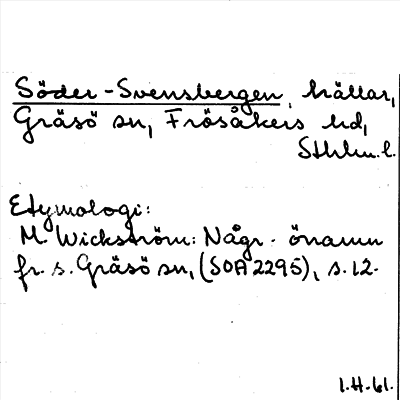 Söder-Svensbergen, hällar,
Gräsö sn, Frösåkers hd,
Sthlm.l.
Etymologi:
M. Wickström: Någr. önamn
fr. s. Gräsö sn, (SOA 2295), s. 12.
1.H.61.